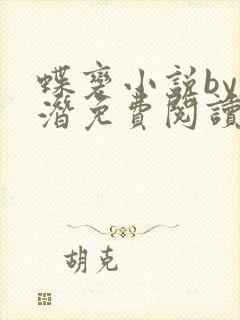 蝶褒小説by
潛免費閱讀
胡克